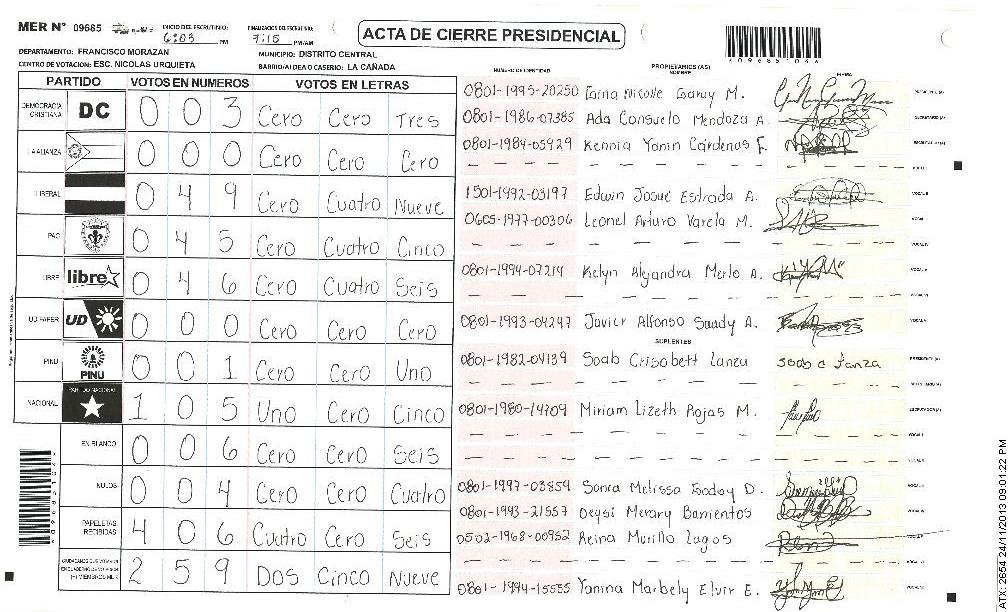 MER N° 09685
INICIO DEL ESCRUTINIO: 6:03 PM
FINALIZACION DEL ESCRUTINIO: 7:15 PM/AM
ACTA DE CIERRE PRESIDENCIAL
DEPARTAMENTO: FRANCISCO MORAZAN
MUNICIPIO: DISTRITO CENTRAL
CENTRO DE VOTACION: ESC. NICOLAS URQUIETA
BARRIO/ALDEA O CASERIO: LA CAÑADA
PARTIDO VOTOS EN NUMEROS VOTOS EN LETRAS
DEMOCRACIA CRISTIANA DC 0 0 3 Cero Cero Tres
LA ALIANZA 0 0 0 Cero Cero Cero
LIBERAL 0 4 9 Cero Cuatro Nueve
PAC 0 4 5 Cero Cuatro Cinco
LIBRE libre 0 4 6 Cero Cuatro Seis
UD FAPER UD 0 0 0 Cero Cero Cero
PINU PINU 0 0 1 Cero Cero Uno
NACIONAL PARTIDO NACIONAL 1 0 5 Uno Cero Cinco
EN BLANCO 0 0 6 Cero Cero Seis
NULOS 0 0 4 Cero Cero Cuatro
PAPELETAS RECIBIDAS 4 0 6 Cuatro Cero Seis
2 5 9 Dos Cinco Nueve
NUMERO DE IDENTIDAD PROPIETARIOS (AS) NOMBRE FIRMA
0801-1995-20250 Nicolle Garay M.
0801-1986-07385 Ada Consuelo Mendoza A.
0801-1984-05929 Kennia Yanin Cárdenas F.
1501-1992-03197 Edwin Josue Estrada A.
0605-1977-00306 Leonel Arturo Varela M.
0801-1994-07214 Kelyn Alejandra Merlo A.
0801-1993-04247 Javier Alfonso Saady A.
SUPLENTES
0801-1982-04139 Soab Crisobett Lanza
0801-1980-14709 Miriam Lizeth Rojas M.
0801-1997-03859 Sonra Melissa Godoy D.
0801-1993-21557 Deysi Merary Barrientos
0502-1968-00952 Reina Murillo Lagos
0801-1994-15555 Yanina Marbely Elvir E.
ATX-2954 24/11/2013 09:01:22 PM